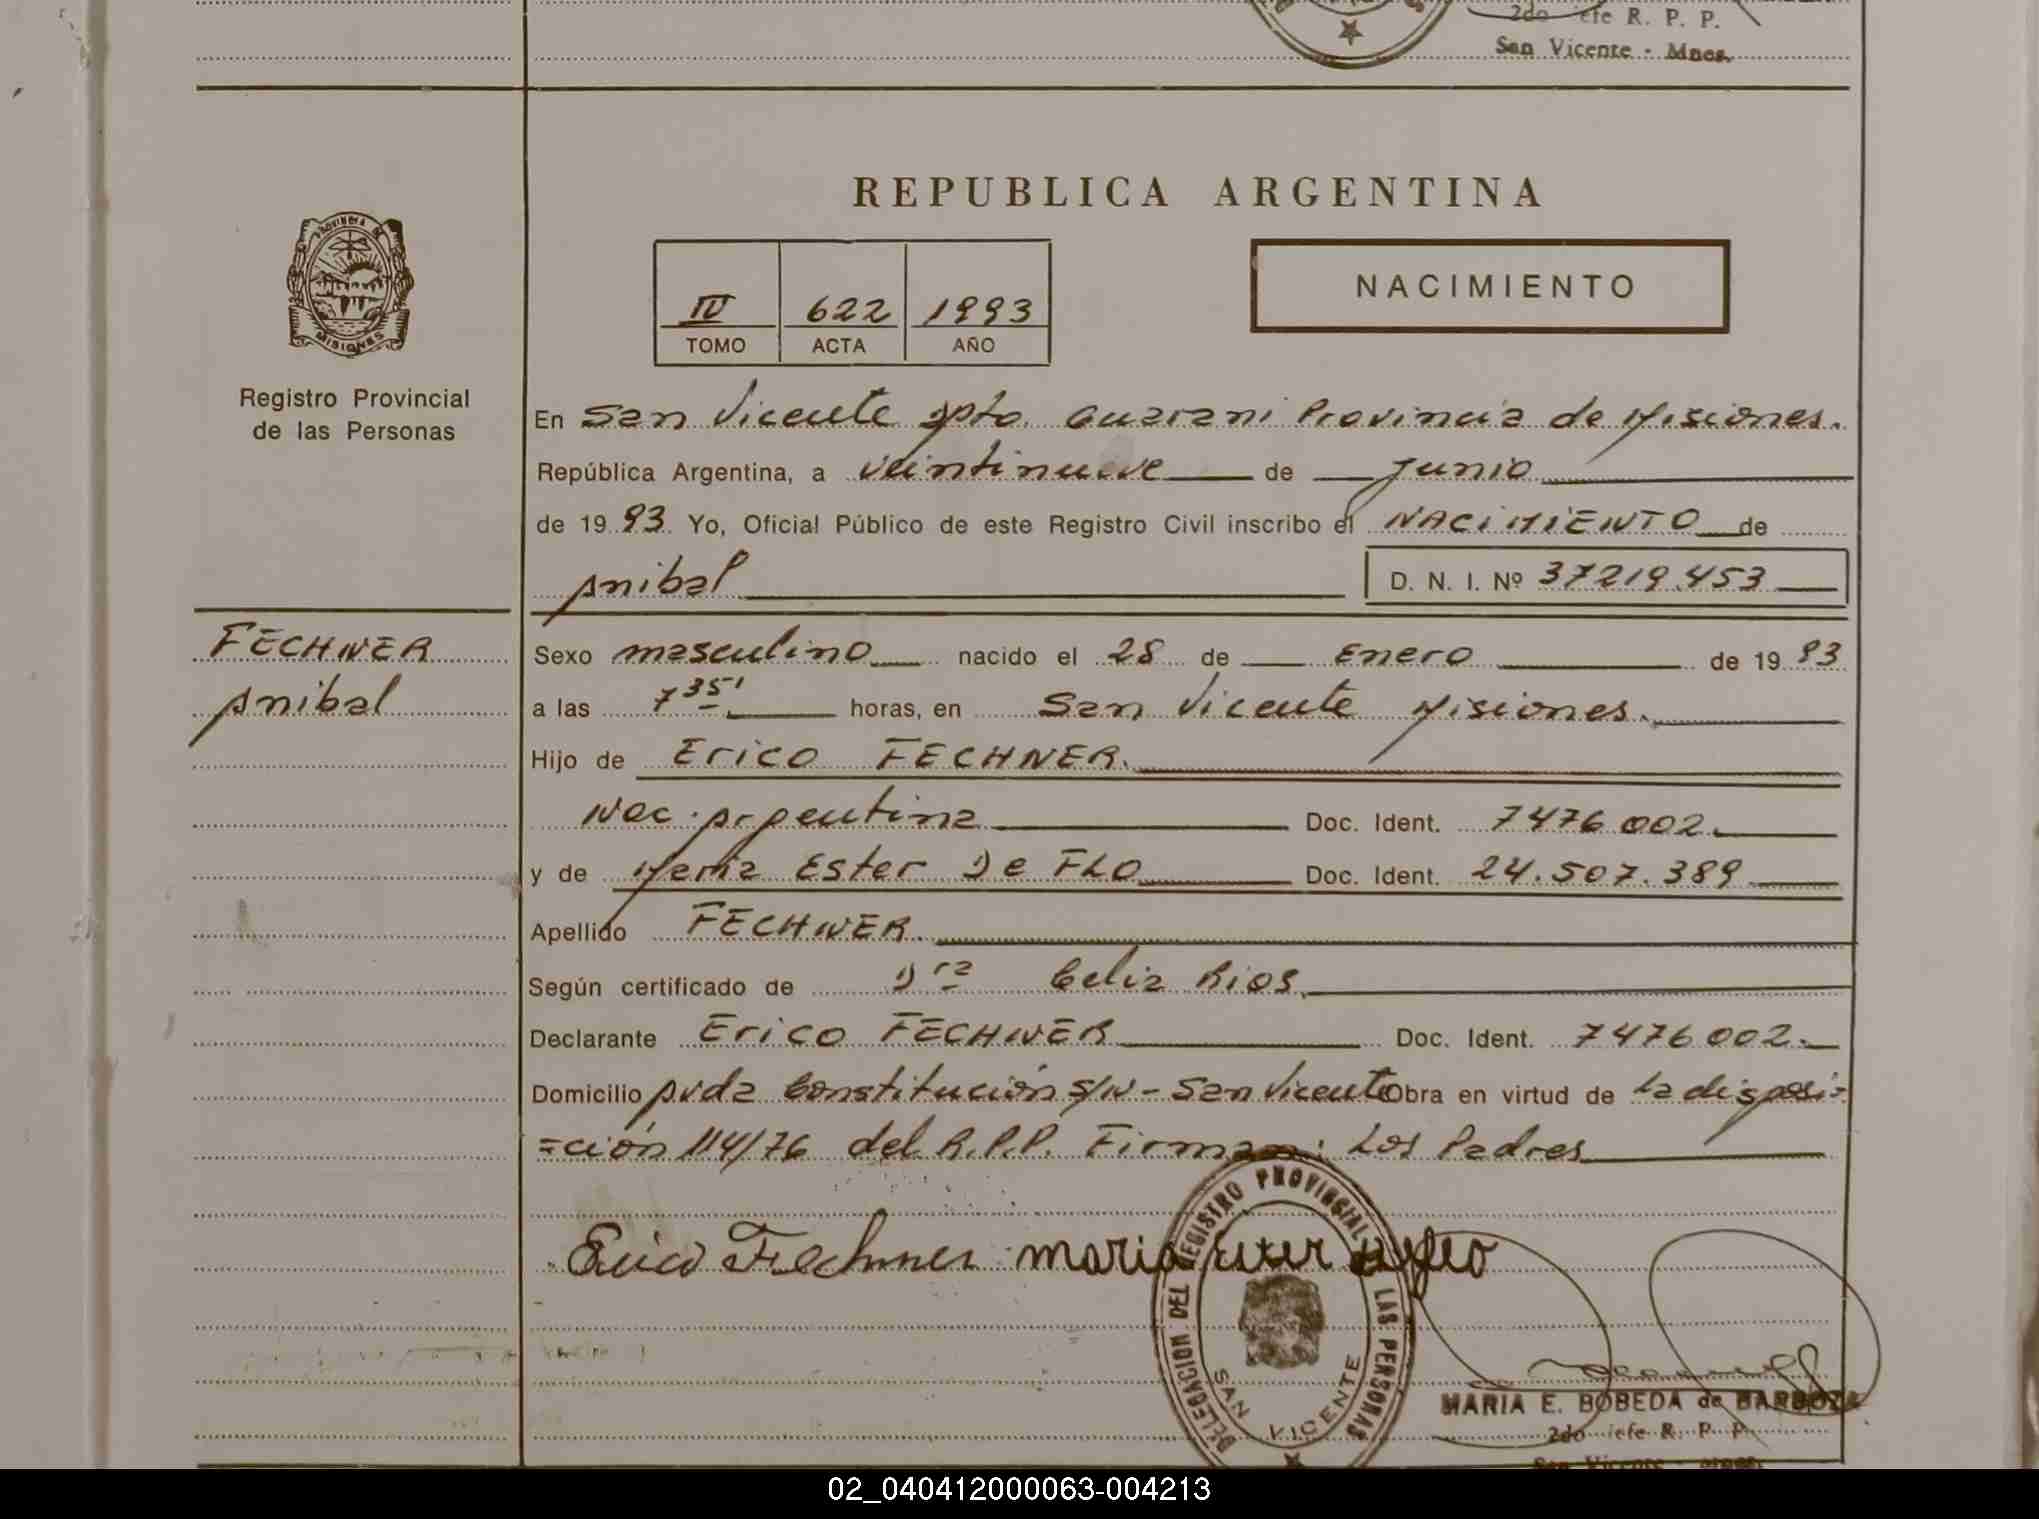 2do jefe R. P. P.
San Vicente - Mnes.
REPUBLICA ARGENTINA
PROVINCIA DE
MISIONES
IV 622 1993
TOMO ACTA AÑO
NACIMIENTO
Registro Provincial
de las Personas
En San Vicente Dpto. Guarani Provincia de Misiones.
República Argentina, a veintinueve de Junio
de 1993 Yo, Oficial Público de este Registro Civil inscribo el NACIMIENTO de
Anibal D. N. I. Nº 37219.453
FECHNER
Anibal
Sexo masculino nacido el 28 de Enero de 1993
a las 7 35' horas, en San Vicente Misiones.
Hijo de Erico FECHNER.
Nac. Argentina Doc. Ident. 7476002
y de Maria Ester De FLO Doc. Ident. 24.507.389
Apellido FECHNER.
Según certificado de Dra Celia Rios.
Declarante Erico FECHNER Doc. Ident. 7476002.
Domicilio Avda Constitución S/N - San Vicente Obra en virtud de la disposi=
=ción 114/76 del R.P.P. Firman: Los Padres
Erico Fechner maria Ester
DELEGACION DEL REGISTRO PROVINCIAL LAS PERSONAS
SAN VICENTE
MARIA E. BOBEDA de BARBOZA
2do jefe R. P. P.
San Vicente
02_040412000063-004213